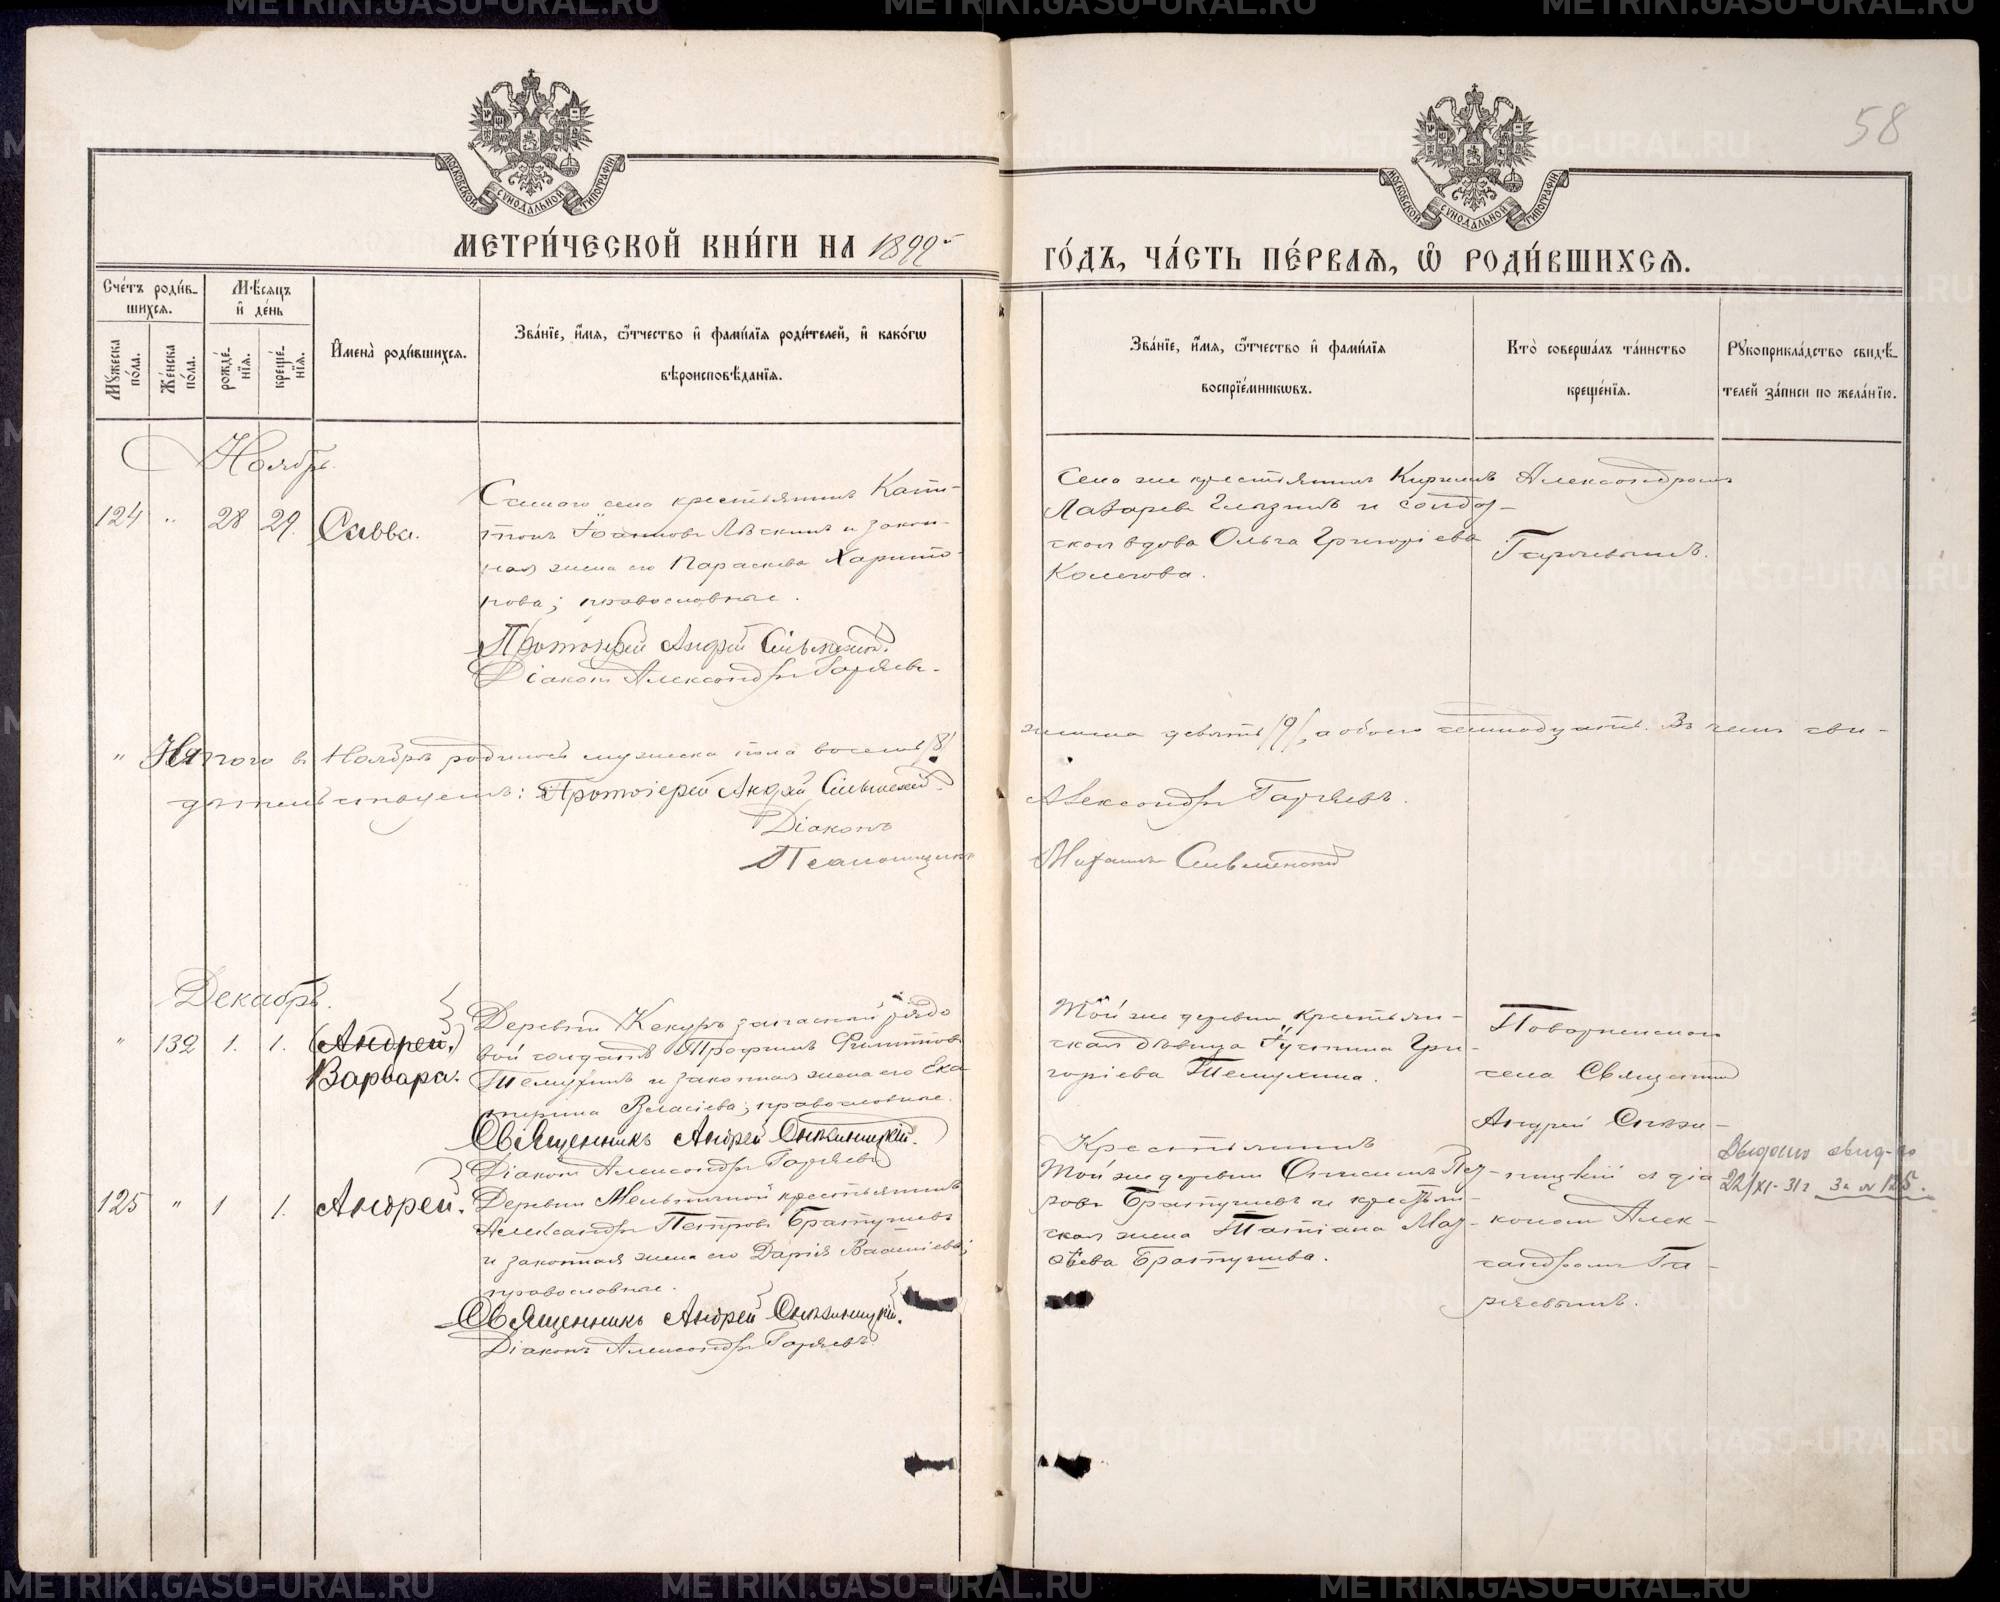 58
МОСКОВСКОЙ СѴНОДАЛЬНОЙ ТИПОГРАФІИ
МОСКОВСКОЙ СѴНОДАЛЬНОЙ ТИПОГРАФІИ
МЕТРИ́ЧЕСКОЙ КНИ́ГИ НА 1899
ГО́ДЪ, ЧА́СТЬ ПЕ́РВАЯ, Ѽ РОДИ́ВШИХСЯ.
Сче́тъ роди́в-
шихся.
Мꙋжеска по́ла.
Же́нска по́ла.
Мѣсяцъ и де́нь
рожде́нїя.
креще́нїя.
Имена̀ роди́вшихся.
Зва́нїе, и́мя, ѻ́тчество и фами́лїя роди́телей, и како́гѡ
вѣроисповѣ́данїя.
Зва́нїе, и́мя, ѻ́тчество и фами́лїя
воспрїе́мникѡвъ.
Кто̀ соверша́лъ та́инство
креще́нїя.
Рꙋкоприкла́дство свидѣ́-
телей за́писи по жела́нїю.
Ноябрь.
124 " 28 29 Савва.
села крестьянинъ Капи-
тонъ Іоанновъ и закон-
ная жена его Параскева Харито-
нова; православные.
Протоіерей Андрей
Діаконъ Александръ Гаряевъ.
Села же крестьянинъ Кириллъ
Лазаревъ и солдат-
ская вдова Ольга Григоріева
Александромъ
Гаряевымъ.
" Итого въ Ноябрѣ родилось мужеска пола восемь /8/
женска девять /9/, а обоего семнадцать. Въ чемъ сви-
дѣтельствуемъ: Протоіерей Андрей
Діаконъ Александръ Гаряевъ.
Псаломщикъ Михаилъ
Декабрь.
" 132 1. 1. (Андрей.)
Варвара.
Деревни Кекуръ запасный рядо
вой солдатъ Трофимъ Филиппов
Темухинъ и законная жена его Ека
терина Власіева; православные.
Священникъ Андрей Снѣжницкій.
Діаконъ Александръ Гаряевъ
Той же деревни крестьян-
ская дѣвица Іустина Гри-
горіева Темухина.
Поварненскаго
села Священник
Андрей Снѣж-
ницкій съ діа
кономъ Алек-
сандромъ Га-
ряевымъ.
125 " 1 1. Андрей.
Деревни Мельничной крестьянинъ
Александръ Петровъ Братушевъ
и законная жена его Дарія
православные.
Священникъ Андрей Снѣжницкій.
Діаконъ Александръ Гаряевъ.
Крестьянинъ
Той же деревни Онисимъ Пет-
ровъ Братушевъ и крестьян-
ская жена Татіана Мат-
ѳѣева Братушева.
Выдано свид-во
22/XI-31г за № 125.
METRIKI.GASO-URAL.RU